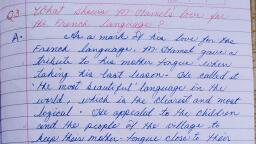 Q3 What shows M. Hamel's love for
the French language?
A. As a mark of his love for the
French language, M. Hamel gave a
tribute to his mother tongue when
taking his last lesson. He called it
the most beautiful language in the
world, which is the clearest and most
logical. He appealed to the children
and the people of the village to
keep their mother-tongue close to their